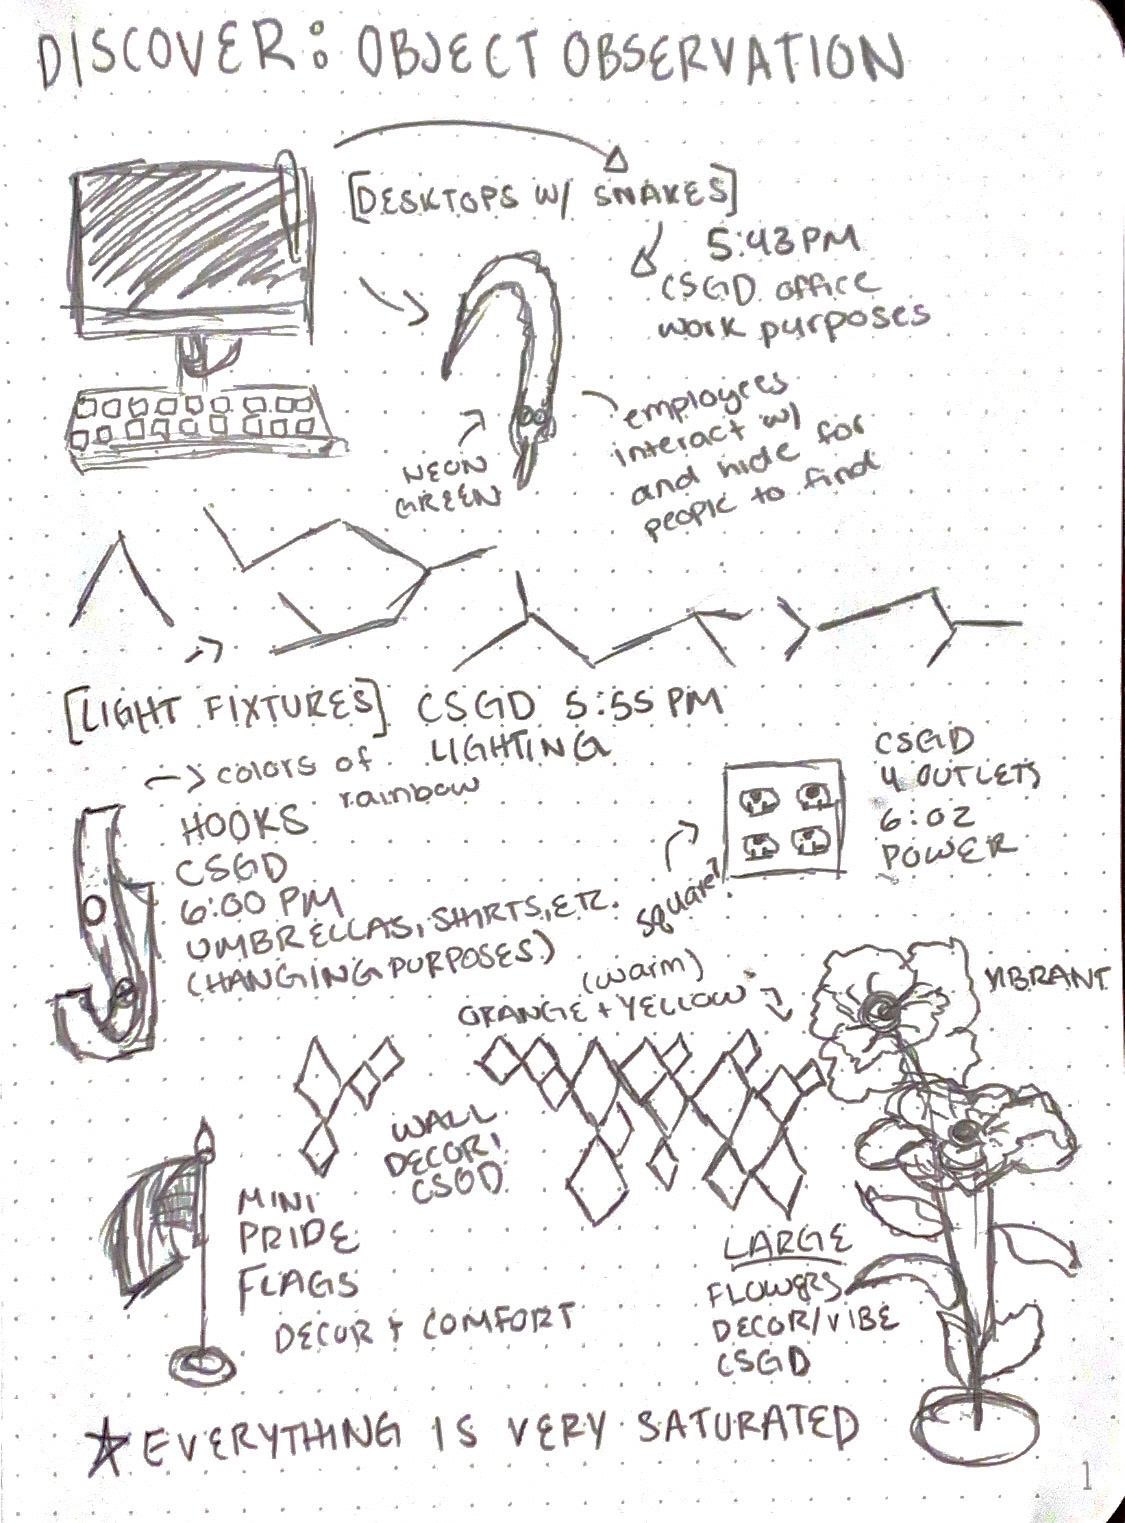 DISCOVER: OBJECT OBSERVATION
[DESKTOPS W/ SNAKES]
5:43PM
CSGD office
work purposes
employees
interact w/
and hide for
people to find
NEON
GREEN
[LIGHT FIXTURES] CSGD 5:55 PM
LIGHTING
colors of
rainbow
HOOKS
CSGD
6:00 PM
UMBRELLAS, SHIRTS, ETC.
(CHANGING PURPOSES)
square!
CSGD
4 OUTLETS
6:02
POWER
(warm)
ORANGE + YELLOW
VIBRANT
WALL
DECOR!
CSGD
MINI
PRIDE
FLAGS
DECOR + COMFORT
LARGE
FLOWERS
DECOR/VIBE
CSGD
☆EVERYTHING IS VERY SATURATED
1